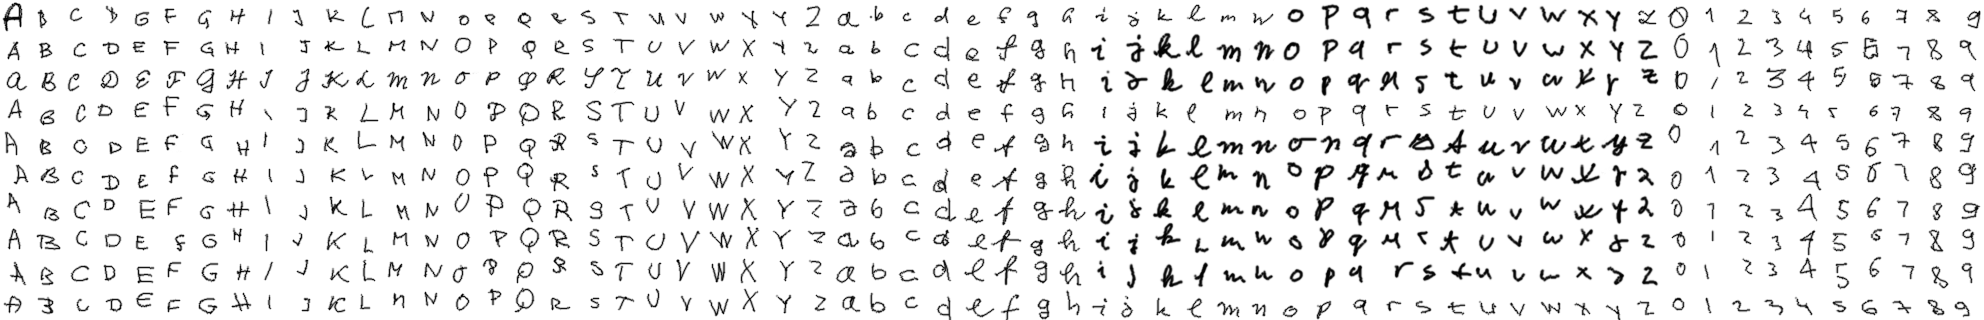 A B C D G F G H I J K L M N O P Q R S T U V W X Y Z a b c d e f g h i j k l m n o p q r s t u v w x y z 0 1 2 3 4 5 6 7 8 9
A B C D E F G H I J K L M N O P Q R S T U V W X Y Z a b c d e f g h i j k l m n o p q r s t u v w x y z 0 1 2 3 4 5 6 7 8 9
a B C D E F G H I J K L m n o P Q R S T U V W X Y Z a b c d e f g h i j k l m n o p q r s t u v w x y z 0 1 2 3 4 5 6 7 8 9
A B C D E F G H I J K L M N O P Q R S T U V W X Y Z a b c d e f g h i j k l m n o p q r s t u v w x y z 0 1 2 3 4 5 6 7 8 9
A B C D E F G H I J K L M N O P Q R S T U V W X Y Z a b c d e f g h i j k l m n o p q r s t u v w x y z 0 1 2 3 4 5 6 7 8 9
A B C D E F G H I J K L M N O P Q R S T U V W X Y Z a b c d e f g h i j k l m n o p q r s t u v w x y z 0 1 2 3 4 5 6 7 8 9
A B C D E F G H I J K L M N O P Q R S T U V W X Y Z a b c d e f g h i j k l m n o p q r s t u v w x y z 0 1 2 3 4 5 6 7 8 9
A B C D E F G H I J K L M N O P Q R S T U V W X Y Z a b c d e f g h i j k l m n o p q r s t u v w x y z 0 1 2 3 4 5 6 7 8 9
A B C D E F G H I J K L M N O P Q R S T U V W X Y Z a b c d e f g h i j k l m n o p q r s t u v w x y z 0 1 2 3 4 5 6 7 8 9
A B C D E F G H I J K L M N O P Q R S T U V W X Y Z a b c d e f g h i j k l m n o p q r s t u v w x y z 0 1 2 3 4 5 6 7 8 9